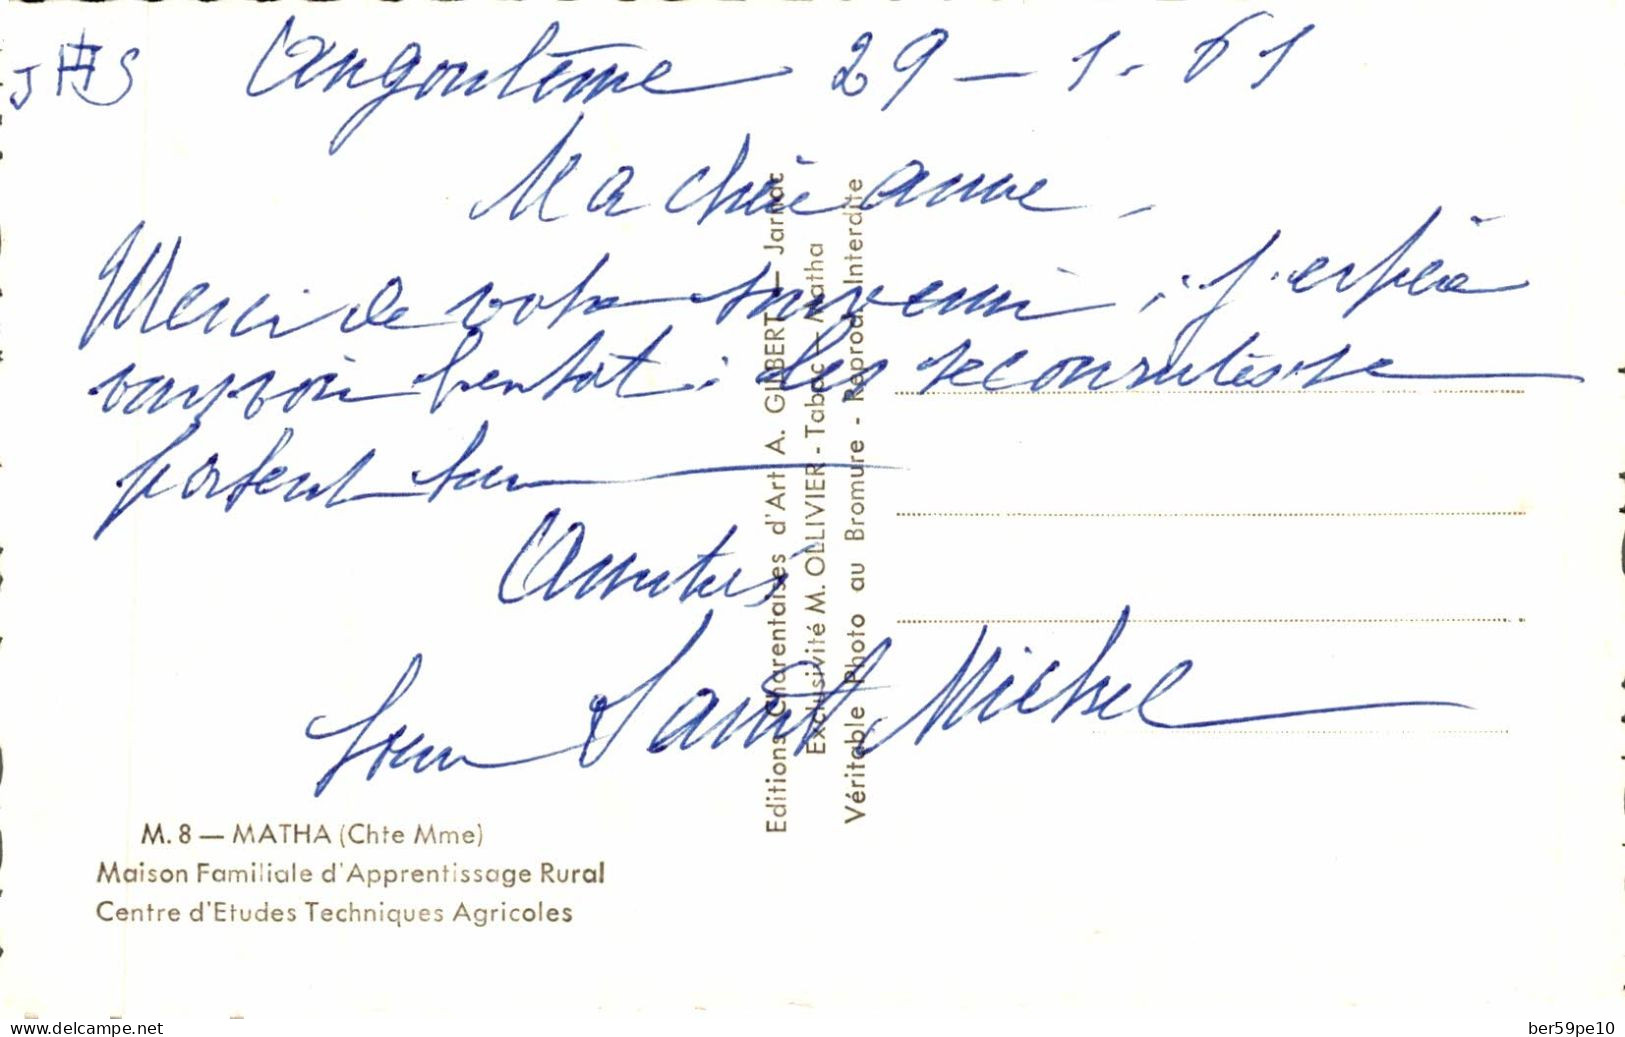 JHS Angoulême 29-1-61
Ma chère anne -
Merci de votre souvenir ; j'espère
vous voir bientôt : les
portent sur
Amitiés
Soeur Saint Michel
M. 8 — MATHA (Chte Mme)
Maison Familiale d'Apprentissage Rural
Centre d'Etudes Techniques Agricoles
Editions Charentaises d'Art A. GILBERT — Jarnac
Exclusivité M. OLLIVIER - Tabac - Matha
Véritable Photo au Bromure - Reprod. Interdite
www.delcampe.net
ber59pe10